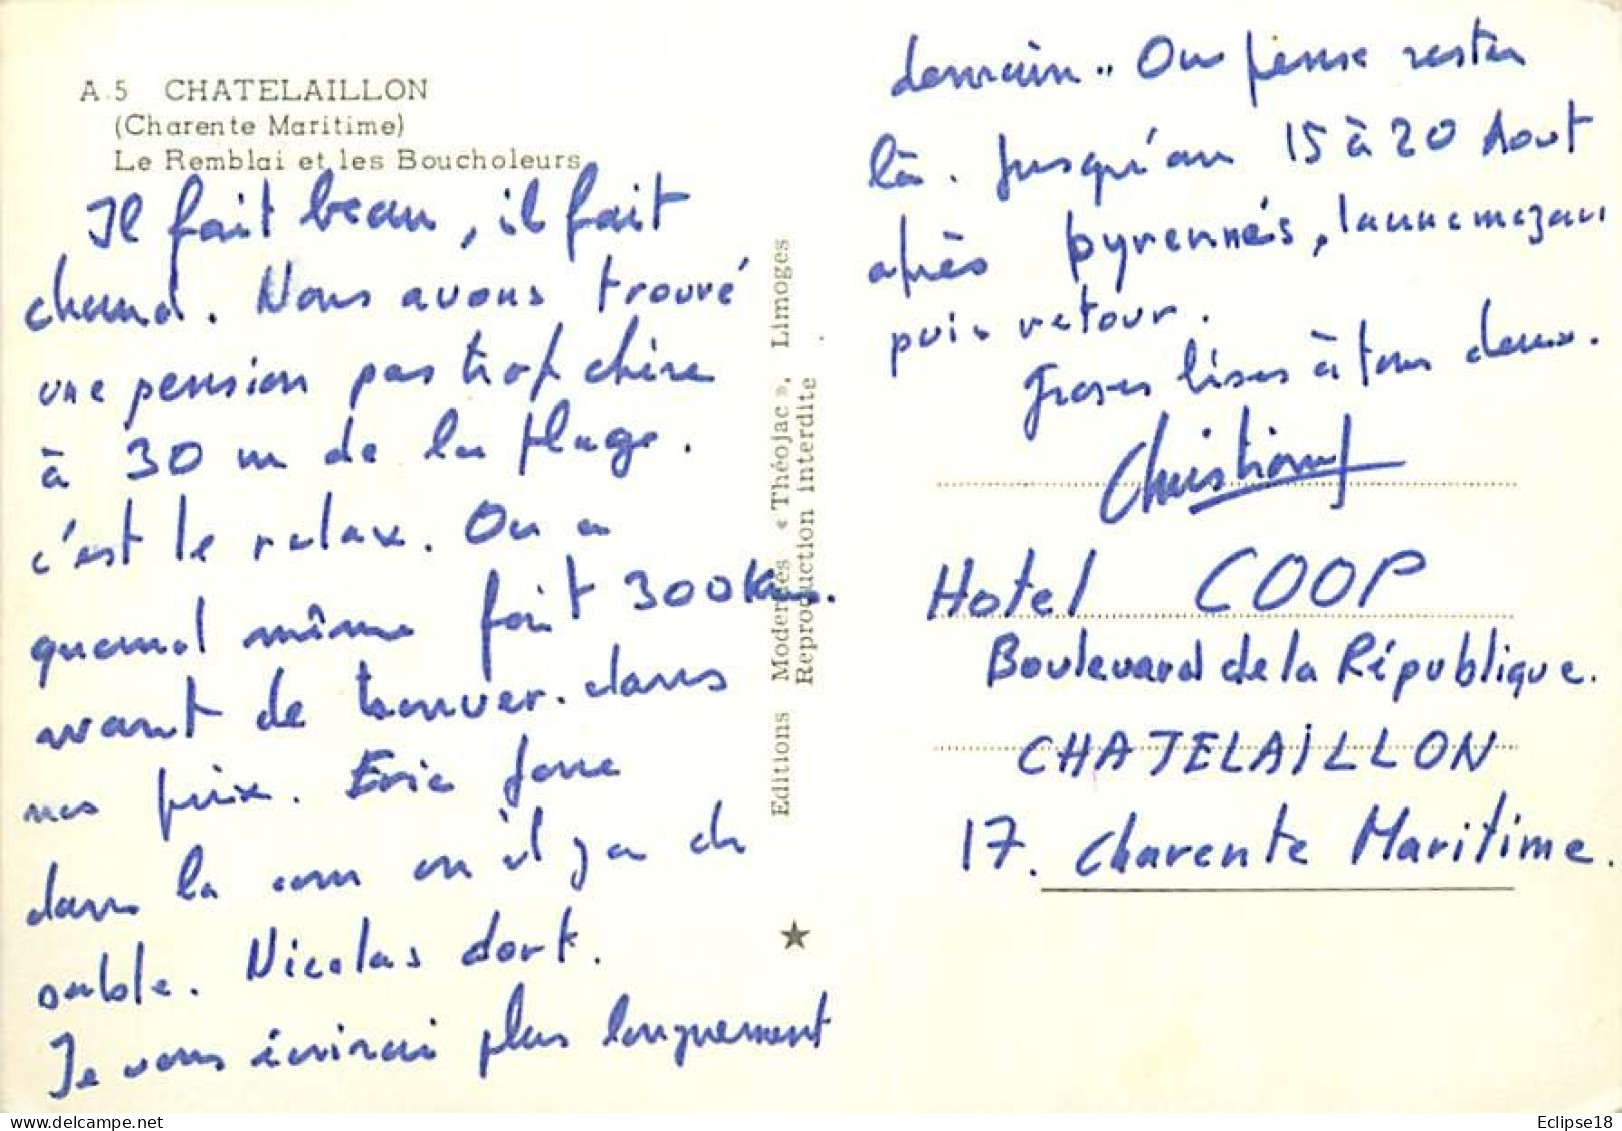 A.5 CHATELAILLON
(Charente Maritime)
Le Remblai et les Boucholeurs
Il fait beau, il fait
chaud. Nous avons trouvé
une pension pas trop chère
à 30 m de la plage.
c'est le relax. On a
quand même fait 300 Km.
avant de trouver. dans
nos prix. Eric joue
dans la cour où il y a du
sable. Nicolas dort.
Je vous écrirai plus longuement
Editions Modernes « Théojac », Limoges
Reproduction interdite
demain.. On pense rester
là. jusqu'au 15 à 20 Aout
après pyrennés, lannemezan
puis retour.
Grosses bises à tous deux.
Christian
Hotel COOP
Boulevard de la République.
CHATELAILLON
17. Charente Maritime.
Eclipse18